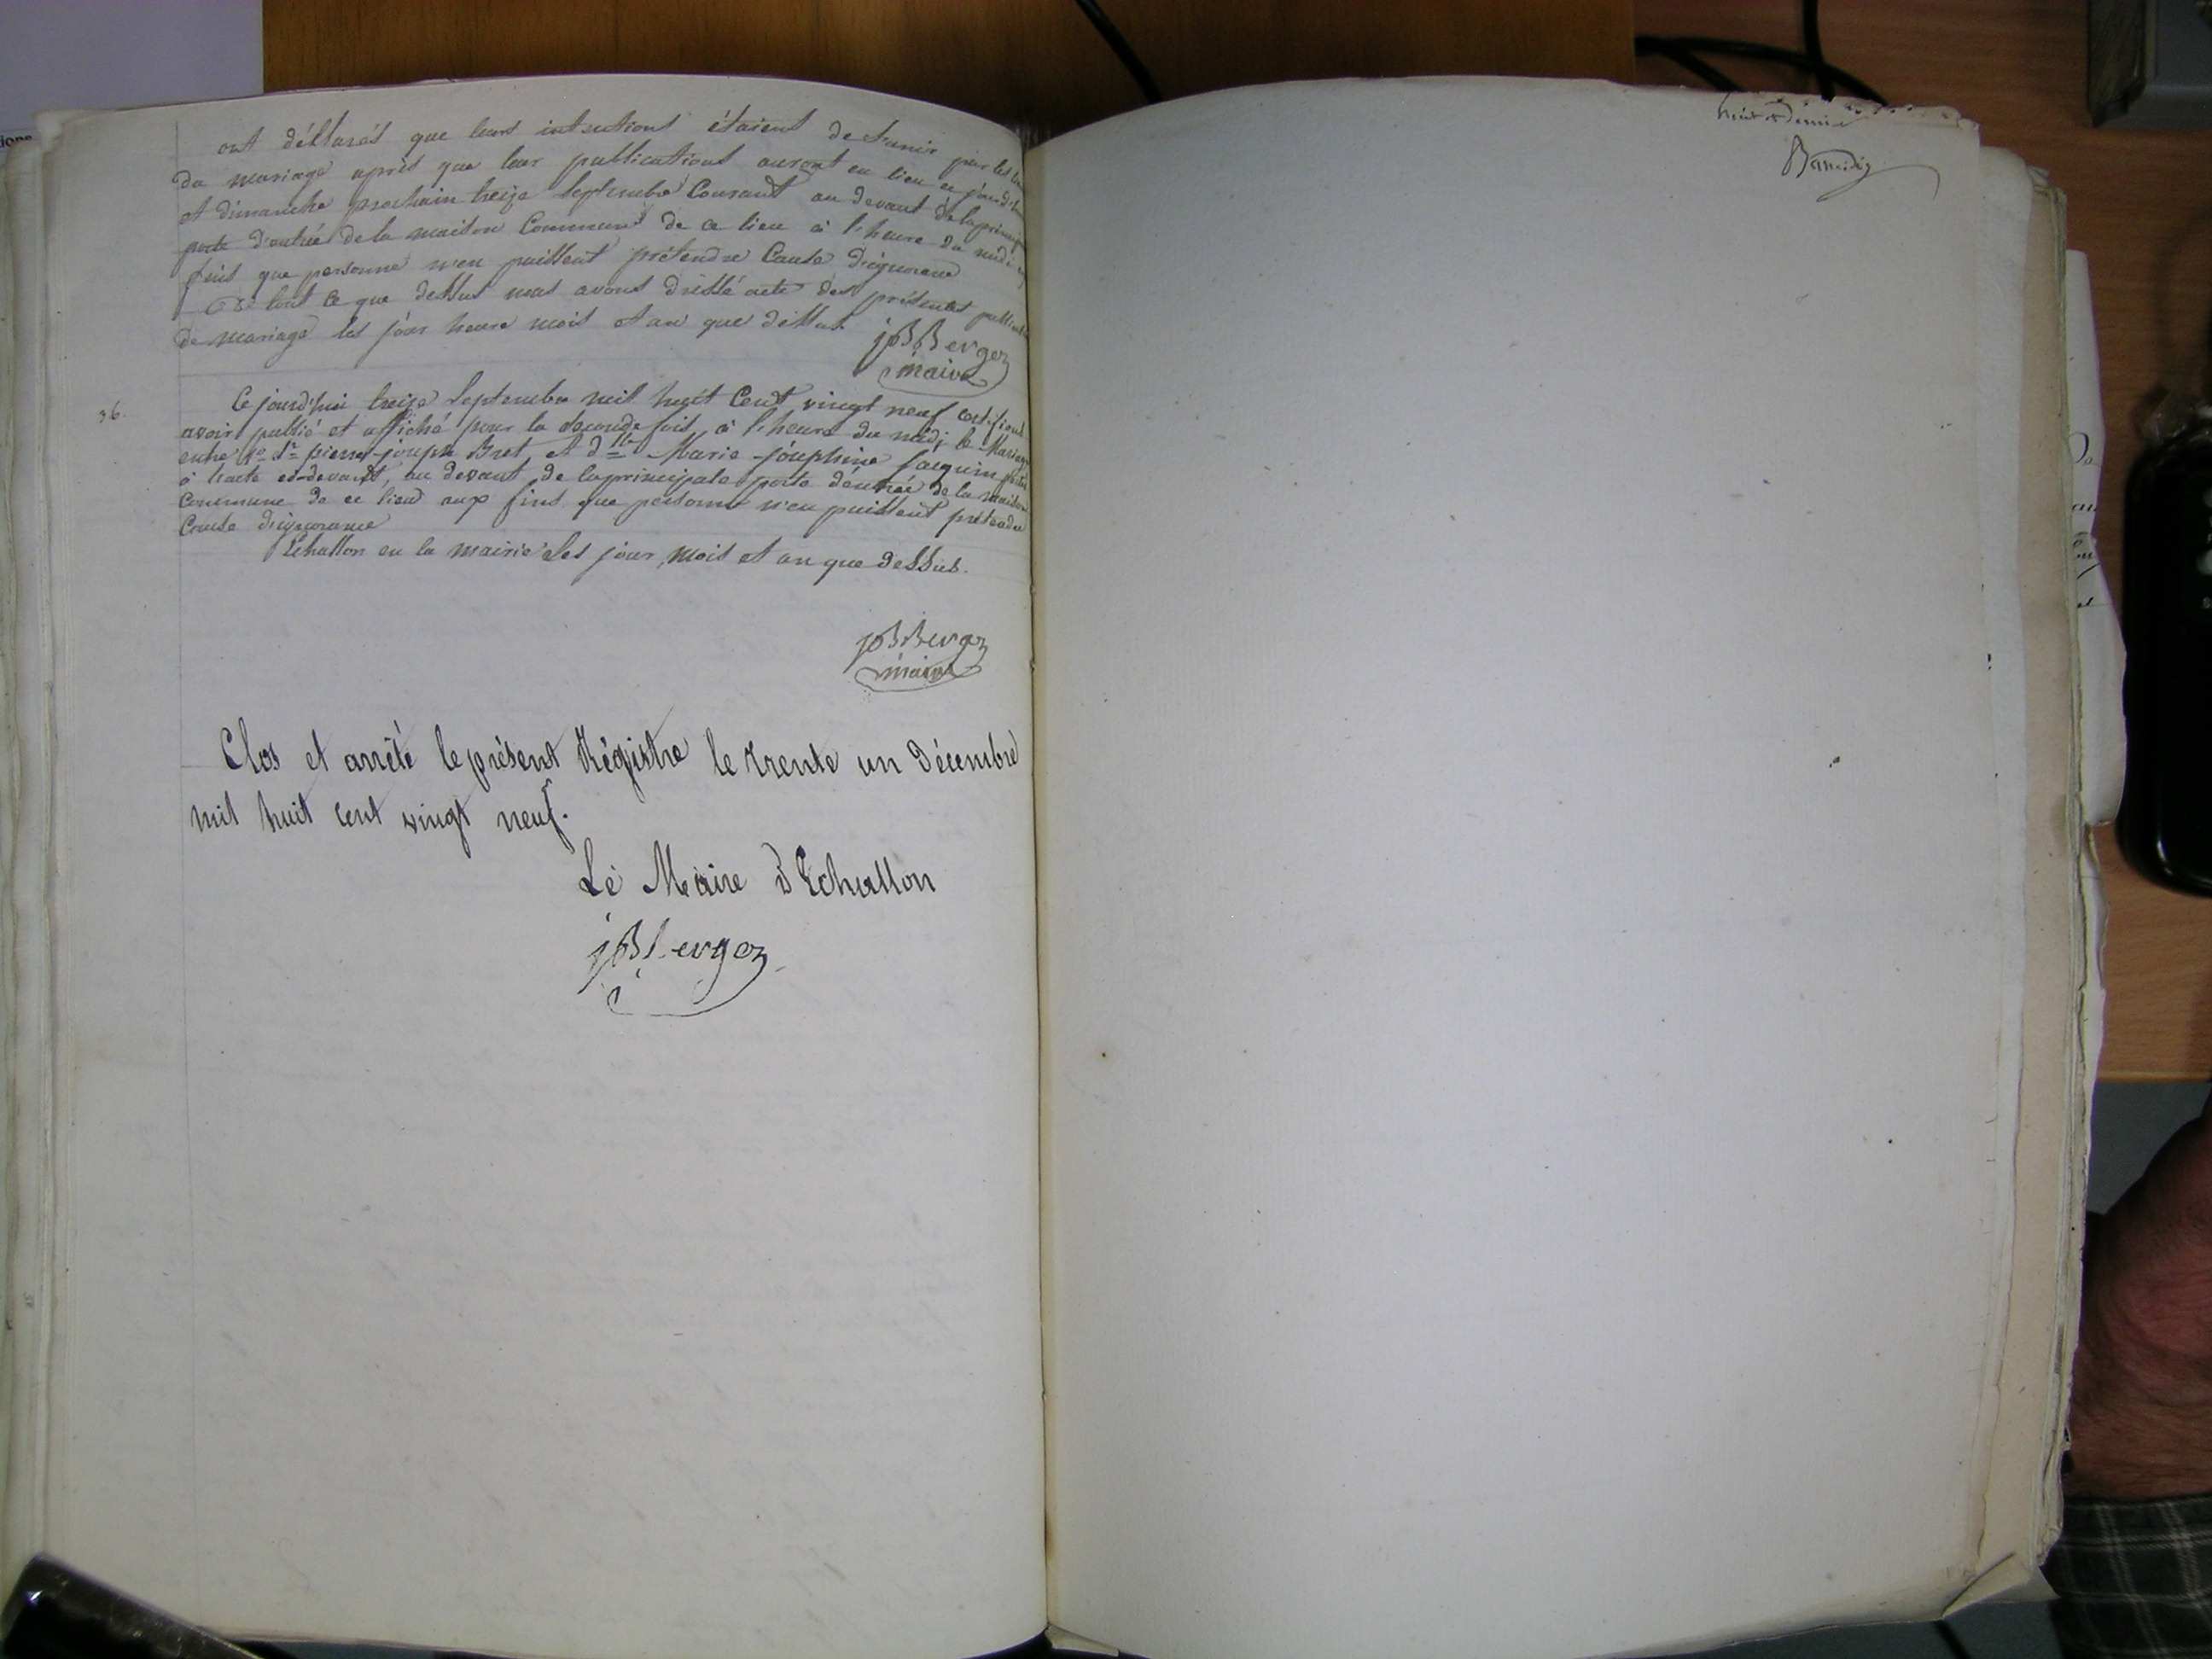 ont déclarés que leurs intentions étaient de s'unir par les
du mariage après que leur publications auront eu lieu ce jourd'hui
et dimanche prochain treize septembre Courant au devant de la principale
porte d'entrée de la maison Commune de ce lieu à l'heure du midi
fins que personne n'en puissent prétendre Cause d'ignorance
De tout ce que dessus nous avons dressé acte des présentes
de mariage les jour heure mois et an que dessus.
jB Bergez
maire
36.
Ce jourd'hui treize Septembre mil huit Cent vingt neuf certifions
avoir publié et affiché pour la seconde fois, à l'heure du midi le Mariage
entre Sr pierre-joseph Bret, et dlle Marie-joséphine jacquin
à l'acte ci-devant, au devant de la principale porte d'entrée de la maison
Commune de ce lieu aux fins que personne n'en puissent prétendre
Cause d'ignorance
Echallon en la mairie les jour, mois et an que dessus.
jB Bergez
maire
Clos et arrêté le présent Régistre le trente un Décembre
mil huit cent vingt neuf.
Le Maire d'Echallon
jB Bergez
huit et dernier